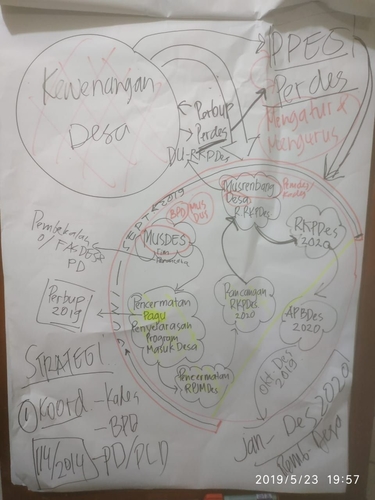 Kewenangan
Desa
DPEGI
Perdes
Mengatur &
Mengurus
Perbup
Perdes
DU-RKPDes
Musrenbang
Desa
R.RKPDes
RKPDes
2020
BPD/MUS
DUS
MUSDES
Pembekalan
O/FASDES
PD
Perbup
2019
Pencermatan
Pagu
Penyelarasan
Program
Masuk Desa
Rancangan
RKPDes
2020
APBDes
2020
Pencermatan
RPJMDes
Okt-Des
2019
STRATEGI
① Koord - Kades
- BPD
- PD/PLD
114/2014
Jan-Des 2020
2019/5/23 19:57